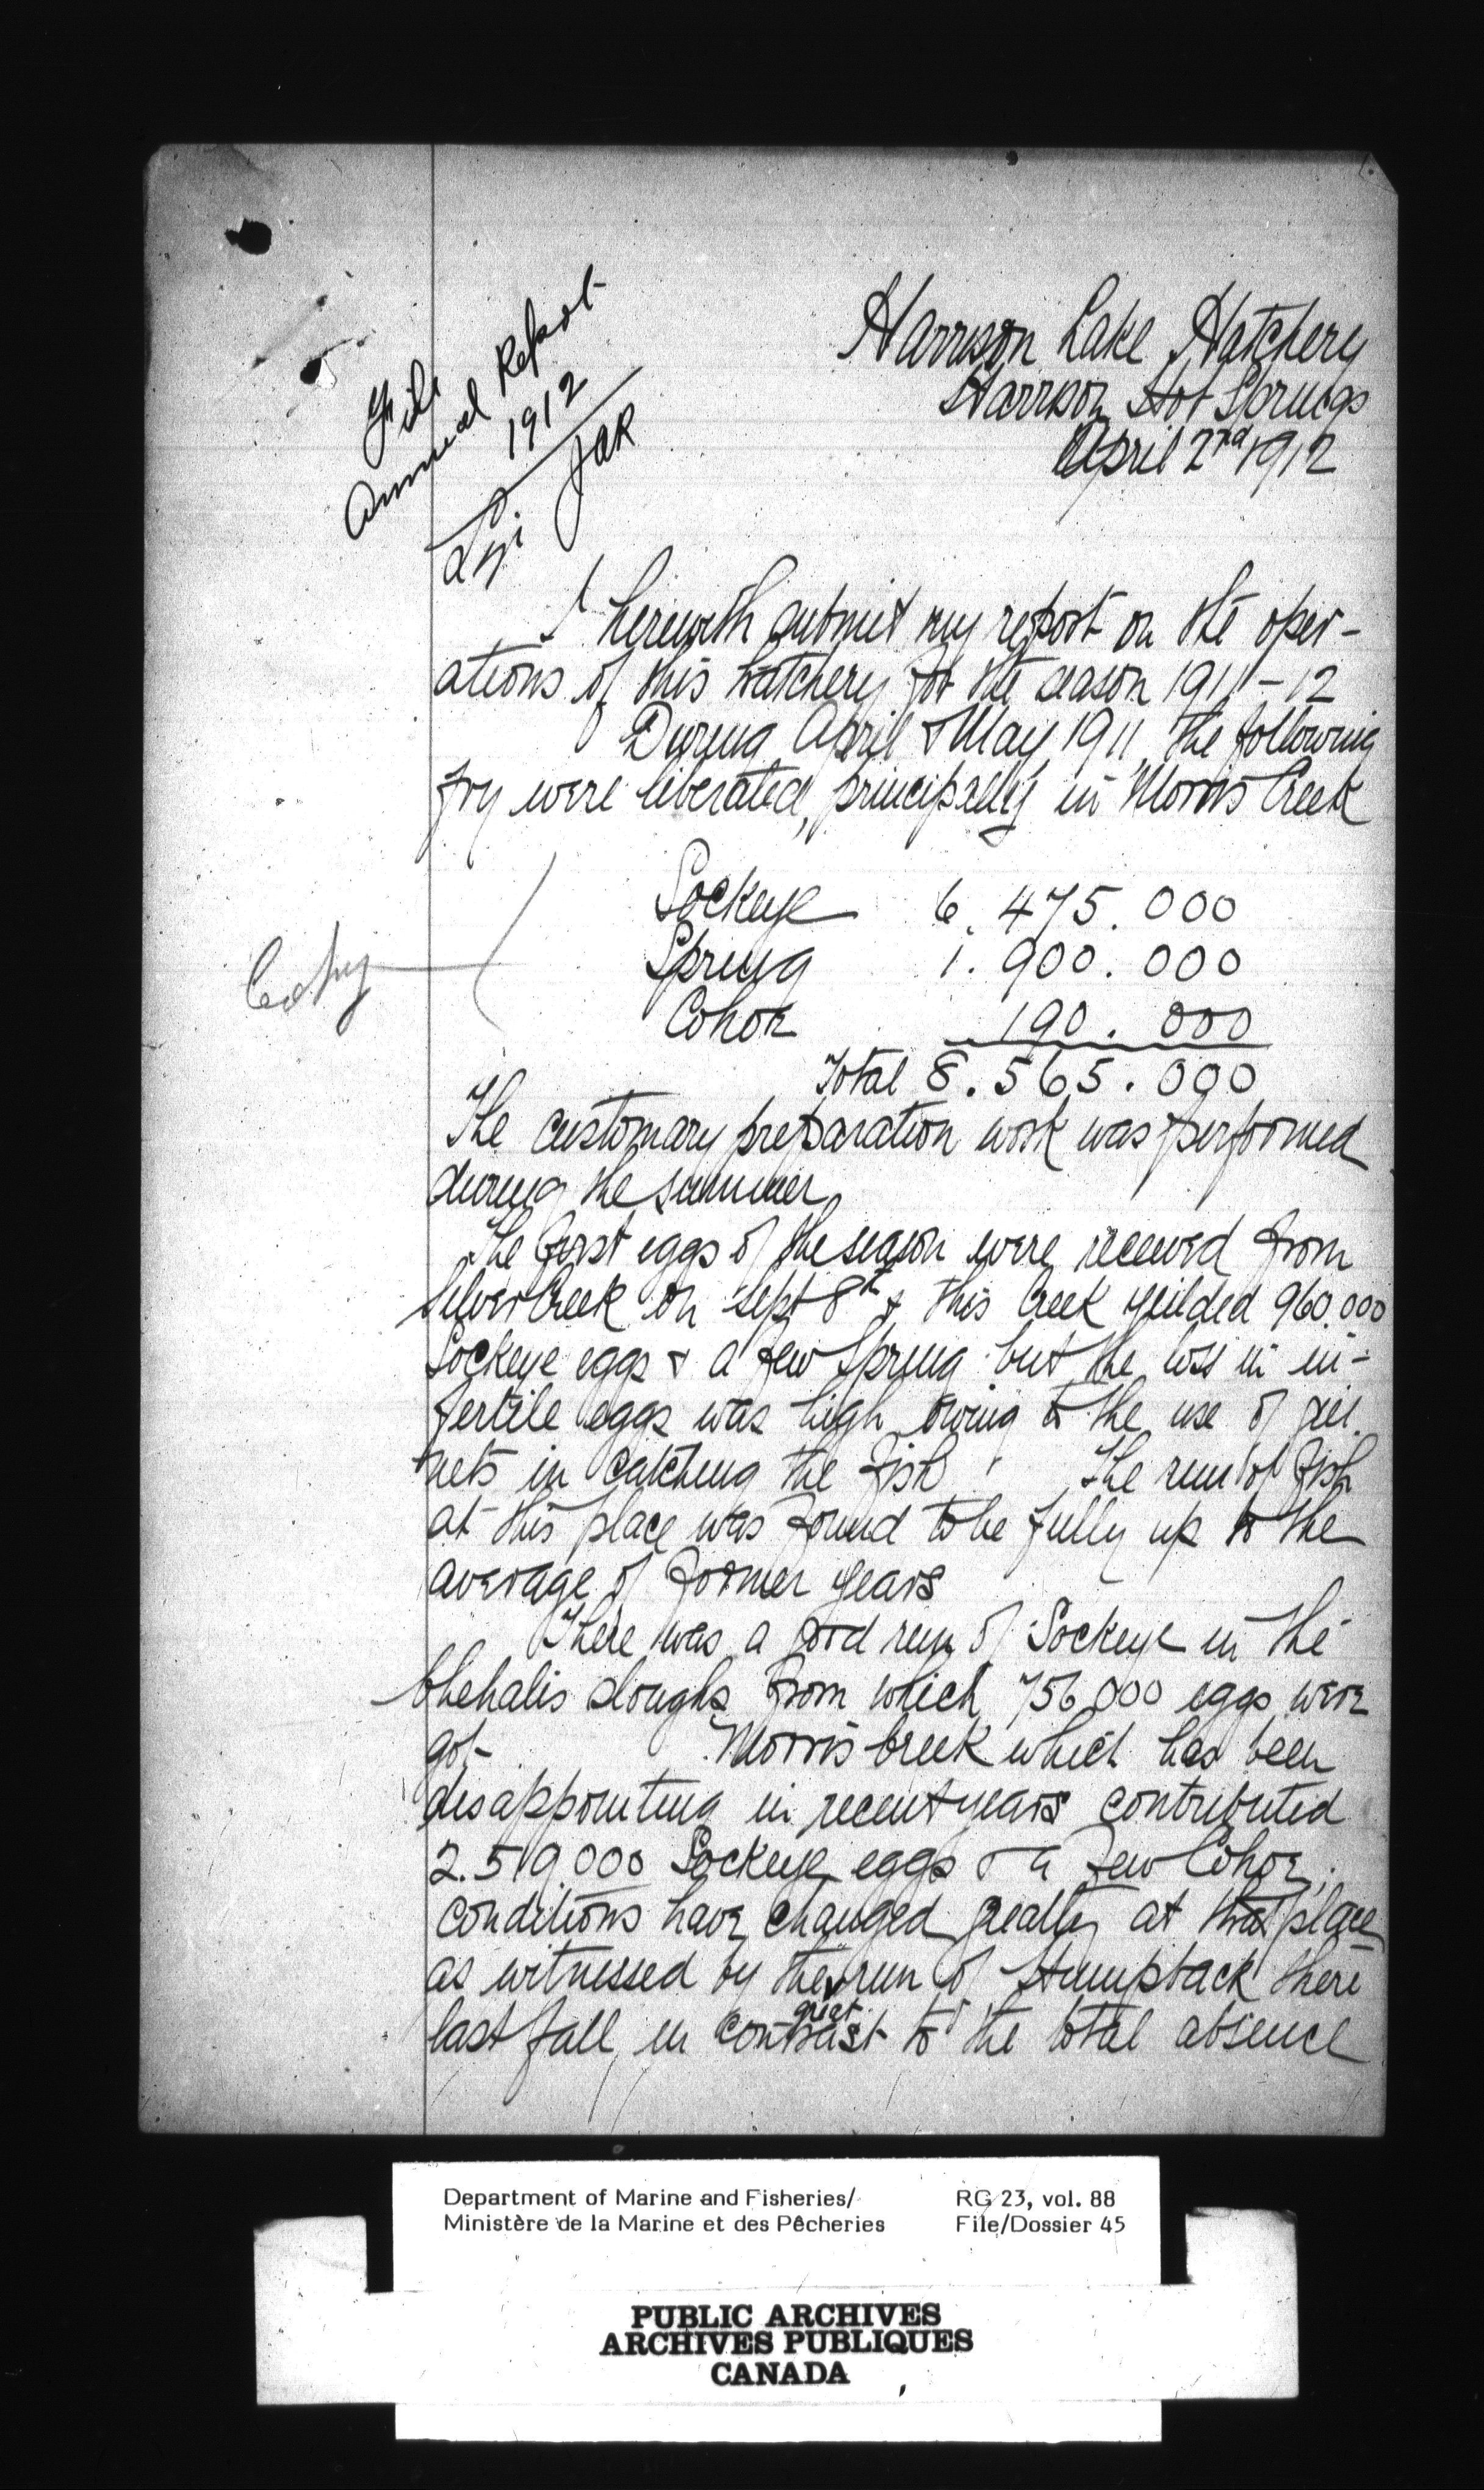 File
Annual Report
1912
JAR
Harrison Lake Hatchery
Harrison Hot Springs
April 2nd 1912
Sir
I herewith submit my report on the oper-
ations of this hatchery for the season 1911-12
During April & May 1911 the following
fry were liberated, principally in Morris Creek
Sockeye 6.475.000
Spring 1.900.000
Cohoe 190.000
Total 8.565.000
The customary preparation work was performed
during the summer,
The first eggs of the season were received from
Silver Creek on Sept 8th & this Creek yeilded 960.000
Sockeye eggs & a few Spring but the loss in in-
fertile eggs was high owing to the use of gill
nets in catching the fish. The run of fish
at this place was found to be fully up to the
average of former years
There was a good run of Sockeye in the
Chehalis sloughs from which 756000 eggs were
got Morris Creek which has been
disappointing in recent years contributed
2.519.000 Sockeye eggs & a few Cohoe,
conditions have changed greatly at that place
as witnessed by the great run of Humpback there
last fall, in contrast to the total absence
Department of Marine and Fisheries/
Ministère de la Marine et des Pêcheries
RG 23, vol. 88
File/Dossier 45
PUBLIC ARCHIVES
ARCHIVES PUBLIQUES
CANADA